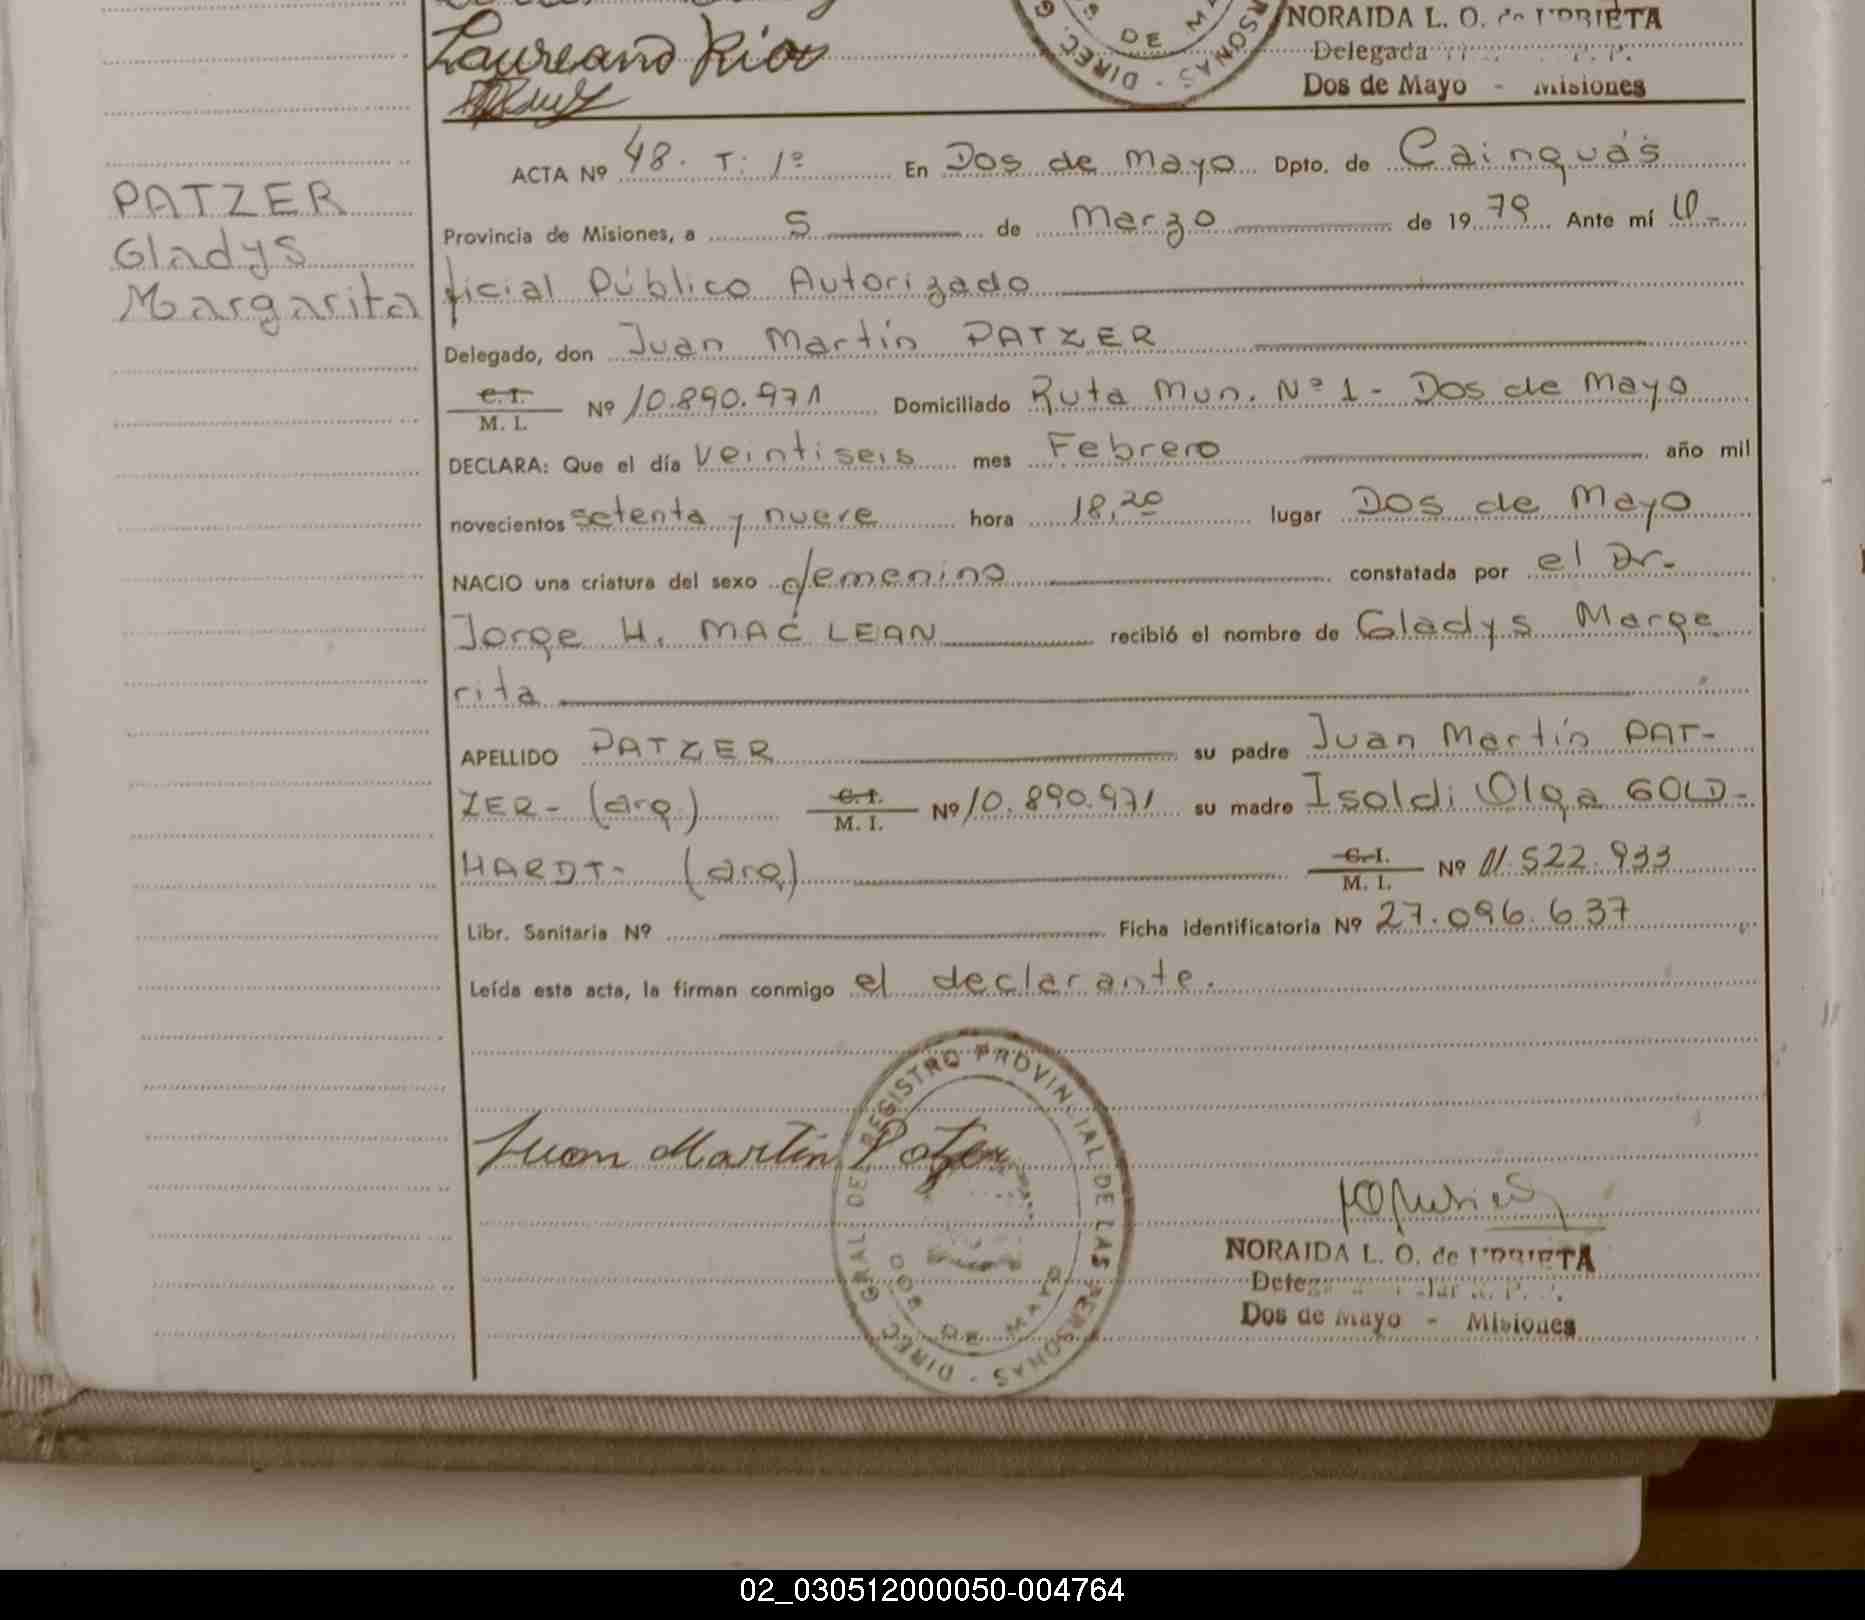 Laureano Rios
NORAIDA L. O. de URRIETA
Delegada
Dos de Mayo - Misiones
DIREC. G
PERSONAS
DOS DE MAYO
PATZER
Gladys
Margarita
ACTA Nº 48. T: 1º En Dos de Mayo Dpto. de Cainguás
Provincia de Misiones, a 5 de Marzo de 1979 Ante mí O-
ficial Público Autorizado
Delegado, don Juan Martín PATZER
C. I. / M. I. Nº 10.890.971 Domiciliado Ruta Mun. Nº 1 - Dos de Mayo
DECLARA: Que el día veintiseis mes Febrero año mil
novecientos setenta y nueve hora 18,20 lugar Dos de Mayo
NACIO una criatura del sexo femenino constatada por el Dr.
Jorge H. MAC LEAN recibió el nombre de Gladys Marga
rita
APELLIDO PATZER su padre Juan Martín PAT-
ZER- (arg.) C. I. / M. I. Nº 10.890.971 su madre Isoldi Olga GOLD-
HARDT- (arg) C. I. / M. I. Nº 11.522.933
Libr. Sanitaria Nº Ficha identificatoria Nº 27.096.637
Leída esta acta, la firman conmigo el declarante.
Juan Martin Patzer
DIREC. GRAL DEL REGISTRO PROVINCIAL DE LAS PERSONAS
DOS DE MAYO
NORAIDA L. O. de URRIETA
Dos de Mayo - Misiones
02_030512000050-004764